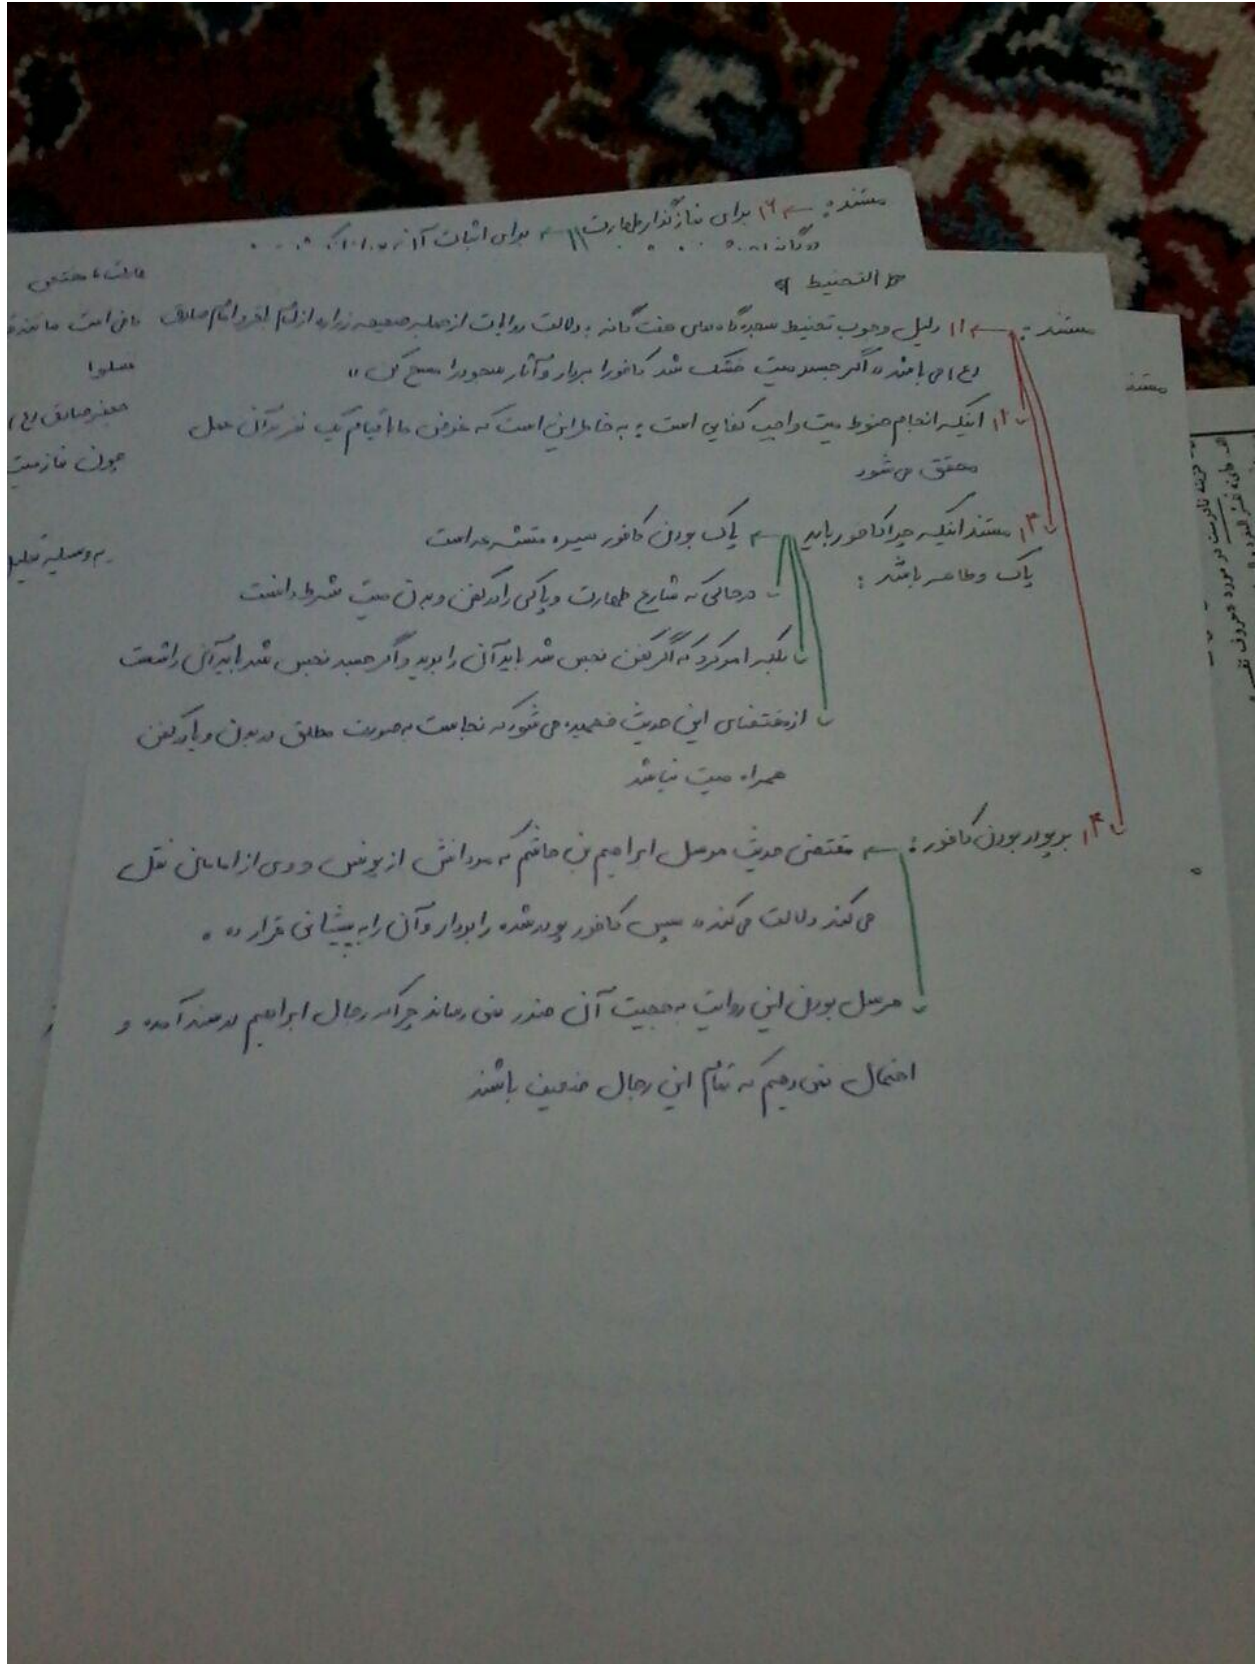 مستند: ۶) برای نمازگذار طهارت ۱) برای اثبات آن
« التحنیط »
مستند: ۱) دلیل وجوب تحنیط سجدگاه‌های هفت گانه به دلالت روایات از جمله صحیحه زراره از امام باقر و امام صادق
(ع) می باشد « اگر جسد میت خشک شد کافور را بردار و آثار سجود را مسح کن »
۲) اینکه انجام حنوط میت واجب کفایی است به خاطر این است که غرض ما با قیام یک نفر بر آن عمل
محقق می شود
۳) مستند اینکه چرا کافور باید پاک بودن کافور سیره متشرعه است
پاک و طاهر باشد :
در حالی که شارع طهارت و پاکی را در کفن و بدن میت شرط دانست
بلکه امر کرد که اگر کفن نجس شد باید آن را برید و اگر جسد نجس شد باید آن را شست
از مقتضای این حدیث فهمیده می شود که نجاست به صورت مطلق در بدن و یا در کفن
همراه میت نباشد
۴) بر پودر بودن کافور : مقتضی حدیث مرسل ابراهیم بن هاشم که مردانش از یونس و وی از امامان نقل
می کند دلالت می کند « سپس کافور پودر شده را بردار و آن را به پیشانی قرار ده » .
مرسل بودن این روایت به حجیت آن ضرر نمی رساند چرا که رجال ابراهیم در سند آمده و
احتمال نمی دهیم که تمام این رجال ضعیف باشند
مستند
کافی است مانند
جعفر صادق (ع)
چون نماز میت
به وسیله